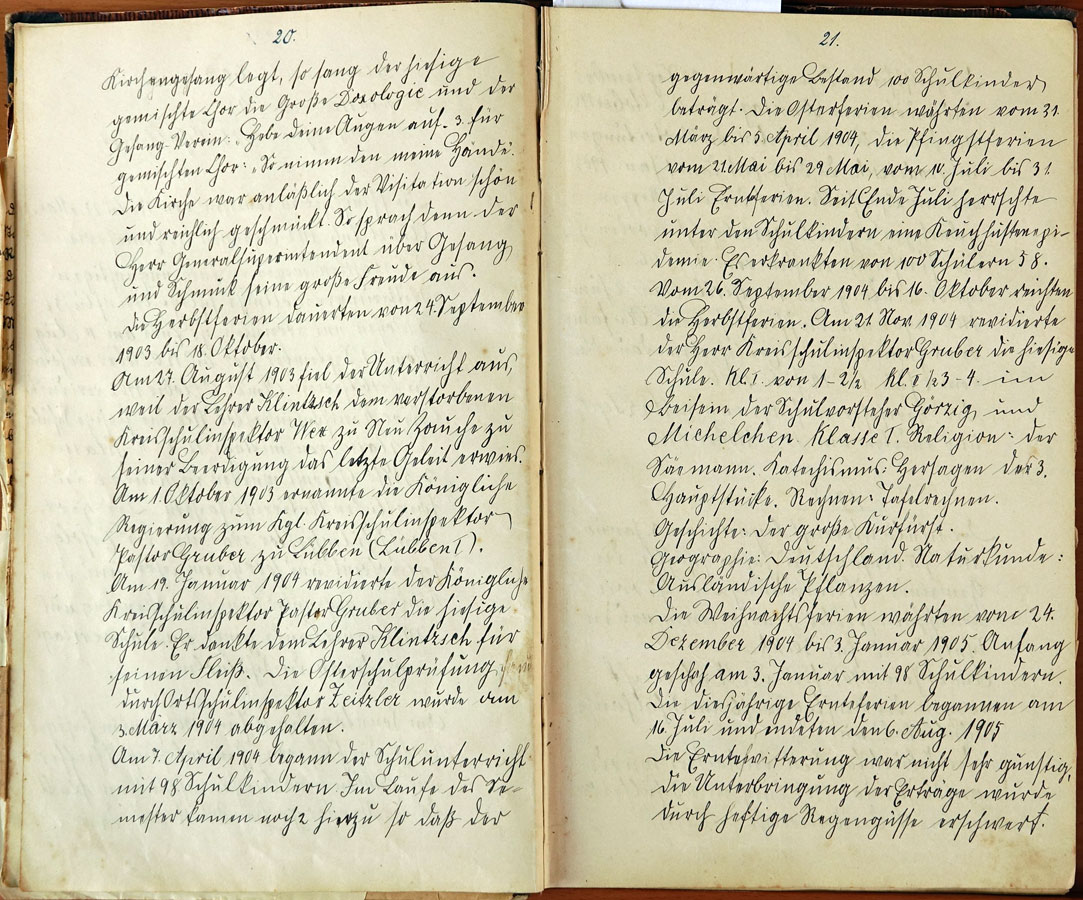 20.
Kirchengesang legt, so sang der hiesige
gemischte Chor die Große Doxologie und der
Gesang-Verein: „Hebe deine Augen auf. 3. für
gemischten Chor: „So nimm den meine Hände.
Die Kirche war anläßlich der Visitation schön
und reichlich geschmückt. So sprach denn der
Herr Generalsuperintendent über Gesang
und Schmuck seine große Freude aus.
Die Herbstferien dauerten von 24. September
1903 bis 18. Oktober.
Am 27. August 1903 fiel der Unterricht aus,
weil der Lehrer Klintzsch dem verstorbenen
Kreisschulinspektor zu Neu Zauche zu
seiner Beerdigung das letzte Geleit erwies.
Am 1. Oktober 1903 ernannte die Königliche
Regierung zum Kgl. Kreisschulinspektor
Pastor Gruber zu Lübben (Lübben I).
Am 19. Januar 1904 revidierte der Königliche
Kreisschulinspektor Pastor Gruber die hiesige
Schule. Er dankte dem Lehrer Klintzsch für
seinen Fleiß. Die Osterschulprüfung
durch Ortsschulinspektor Zeitzler wurde am
3. März 1904 abgehalten.
Am 7. April 1904 begann der Schulunterricht
mit 98 Schulkindern. Im Laufe des Se-
mester kamen noch 2 hierzu so daß der
21.
gegenwärtige Bestand 100 Schulkinder
beträgt. Die Osterferien währten vom 21.
März bis 5. April 1904, die Pfingstferien
vom 21. Mai bis 29 Mai, vom 10. Juli bis 31
Juli Ernteferien. Seit Ende Juli herrschte
unter den Schulkindern eine Keuchhustenepi-
demie. Es erkrankten von 100 Schülern 58.
Vom 26. September 1904 bis 16. Oktober reichten
die Herbstferien. Am 21 Nov. 1904 revidierte
der Herr Kreisschulinspektor Gruber die hiesige
Schule. Kl. I. von 1-2½ Kl. II ½3-4. im
Beisein der Schulvorsteher Görzig und
Michelchen. Klasse I. Religion: der
Säemann. Katechismus: Hersagen der 3.
Hauptstücke. Rechnen: Tafelrechnen.
Geschichte: Der große Kurfürst.
Geographie: Deutschland. Naturkunde:
Ausländische Pflanzen.
Die Weihnachtsferien währten vom 24.
Dezember 1904 bis 3. Januar 1905. Anfang
geschah am 3. Januar mit 98 Schulkindern.
Die diesjährige Ernteferien begannen am
16. Juli und endeten den 6. Aug. 1905
Die Erntewitterung war nicht sehr günstig,
die Unterbringung der Erträge wurde
durch heftige Regengüsse erschwert.